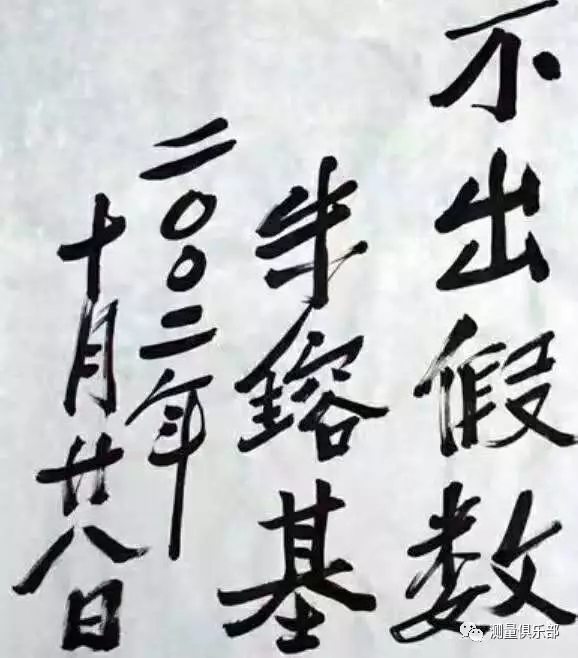 不出假数
朱镕基
二〇〇二年
十月廿八日
测量俱乐部